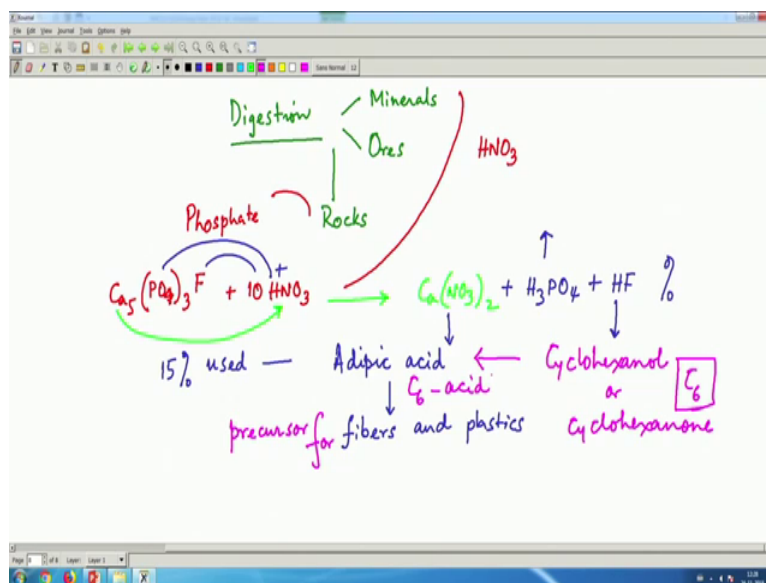 Xournal
File Edit View Journal Tools Options Help
Sans Normal 12
Digestion
Minerals
Ores
Rocks
HNO3
Phosphate
Ca5(PO4)3F + 10 HNO3 → Ca(NO3)2 + H3PO4 + HF %
+
15% used — Adipic acid ← Cyclohexanol
C6-acid or C6
precursor for fibers and plastics cyclohexanone
Page 8 of 8 Layer: Layer 1